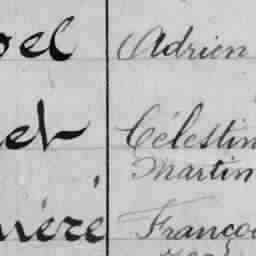 oel Adrien
et Célestin
Martin
ière Franço